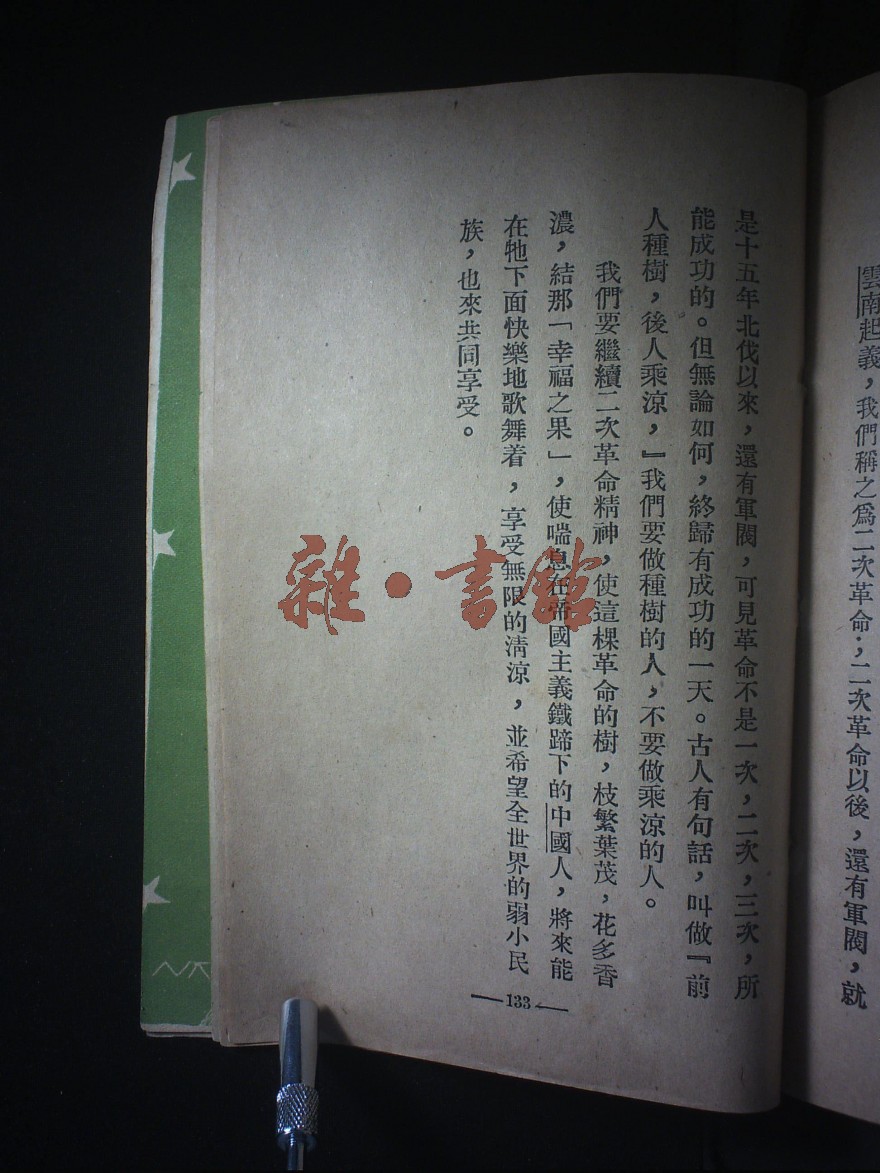 雲南起義，我們稱之爲二次革命；二次革命以後，還有軍閥，就
是十五年北伐以來，還有軍閥，可見革命不是一次，二次，三次，所
能成功的。但無論如何，終歸有成功的一天。古人有句話，叫做『前
人種樹，後人乘涼，』我們要做種樹的人，不要做乘涼的人。
我們要繼續二次革命精神，使這棵革命的樹，枝繁葉茂，花多香
濃，結那「幸福之果」，使喘息在帝國主義鐵蹄下的中國人，將來能
在牠下面快樂地歌舞着，享受無限的淸涼，並希望全世界的弱小民
族，也來共同享受。
—133—
雜·書館